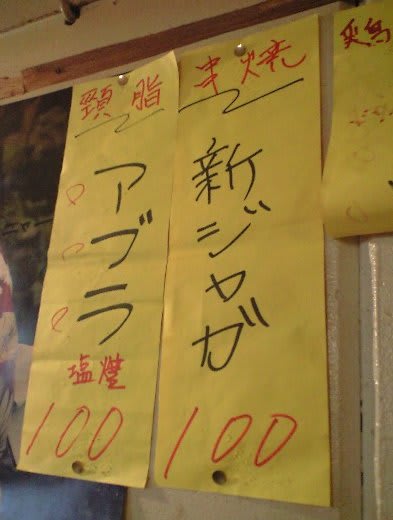 串焼
新ジャガ
100
頸脂
アブラ
塩焼
100